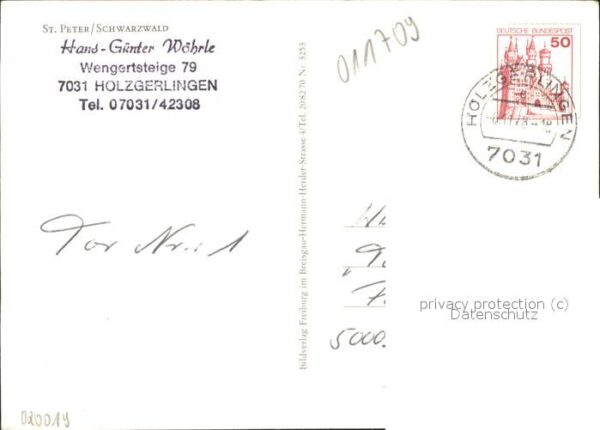 St. Peter/Schwarzwald
Hans-Günter Wöhrle
Wengertsteige 79
7031 HOLZGERLINGEN
Tel. 07031/42308
Tor Nr.: 1
020019
Bildverlag Freiburg im Breisgau-Hermann-Herder-Strasse 4/Tel. 208270 Nr. 5255
011709
DEUTSCHE BUNDESPOST
50
HOLZGERLINGEN
7031
5000
privacy protection (c)
Datenschutz